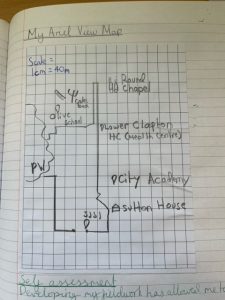 My Ariel View Map
Scale =
1cm = 40m
Round
Chapel
olive
School
Lower Clapton
HC (Health Centre)
PW
City Academy
Sutton House
Self assessment
Developing - my fieldwork has allowed me